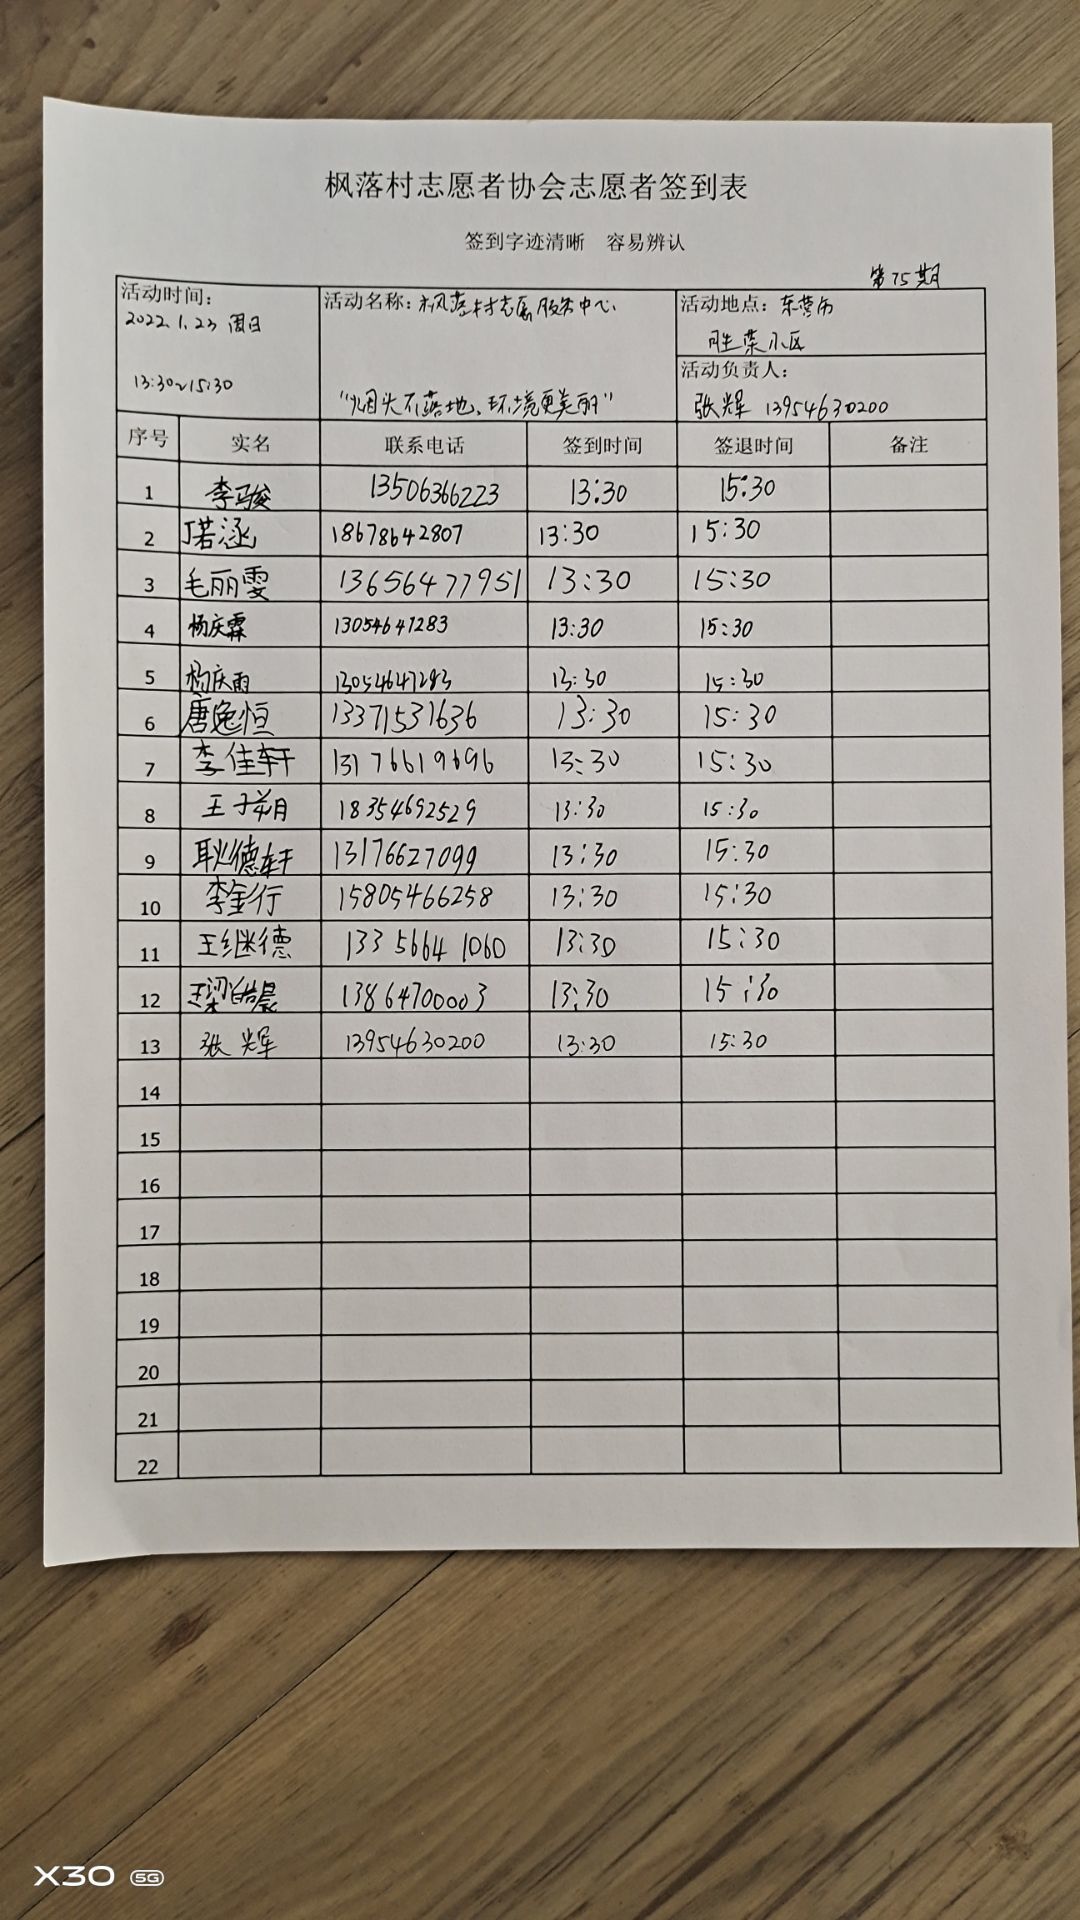 枫落村志愿者协会志愿者签到表
签到字迹清晰 容易辨认
第75期
活动时间: 活动名称: 枫落村志愿服务中心 活动地点: 东营市
2022.1.23 周日
胜莱小区
活动负责人:
13:30~15:30 "烟头不落地、环境更美丽" 张辉 13954630200
序号 实名 联系电话 签到时间 签退时间 备注
1 李骏 13506366223 13:30 15:30
2 丁若涵 18678642807 13:30 15:30
3 毛丽雯 13656477951 13:30 15:30
4 杨庆霖 13054647283 13:30 15:30
5 杨庆雨 13054647283 13:30 15:30
6 唐逸恒 13371531636 13:30 15:30
7 李佳轩 13176619696 13:30 15:30
8 王子朔 18354692529 13:30 15:30
9 耿德轩 13176627099 13:30 15:30
10 李金行 15805466258 13:30 15:30
11 王继德 133 5664 1060 13:30 15:30
12 梁皓晨 13864700003 13:30 15:30
13 张辉 13954630200 13:30 15:30
14
15
16
17
18
19
20
21
22
X30 5G